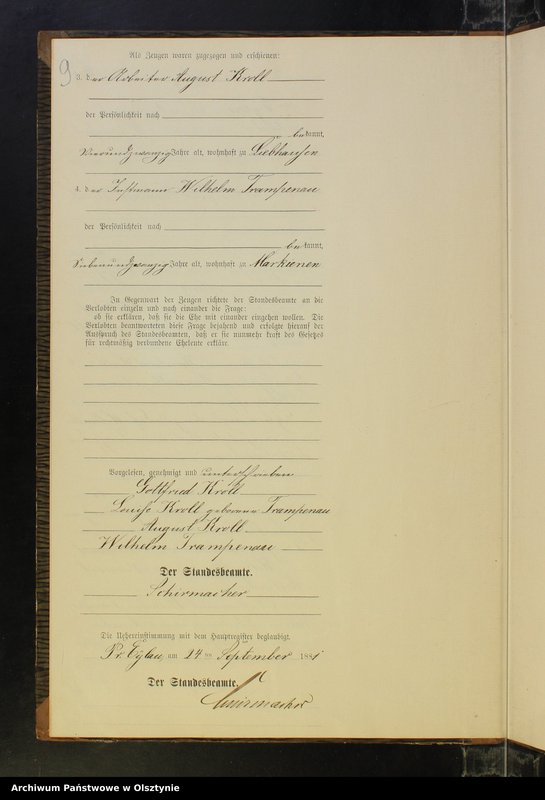 9
Als Zeugen waren zugezogen und erschienen:
3. der Arbeiter August Kroll
der Persönlichkeit nach
bekannt,
Vierundzwanzig Jahre alt, wohnhaft zu Liebhausen
4. der Instmann Wilhelm Trampenau
der Persönlichkeit nach
bekannt,
Siebenundzwanzig Jahre alt, wohnhaft zu Markienen
In Gegenwart der Zeugen richtete der Standesbeamte an die
Verlobten einzeln und nach einander die Frage:
ob sie erklären, daß sie die Ehe mit einander eingehen wollen. Die
Verlobten beantworteten diese Frage bejahend und erfolgte hierauf der
Ausspruch des Standesbeamten, daß er sie nunmehr kraft des Gesetzes
für rechtmäßig verbundene Eheleute erkläre.
Vorgelesen, genehmigt und unterschrieben
Gottfried Kroll
Louise Kroll geborene Trampenau
August Kroll
Wilhelm Trampenau
Der Standesbeamte.
Schirmacher
Die Uebereinstimmung mit dem Hauptregister beglaubigt.
Pr. Eylau, am 14 ten September 1881
Der Standesbeamte.
Schirmacher
Archiwum Państwowe w Olsztynie